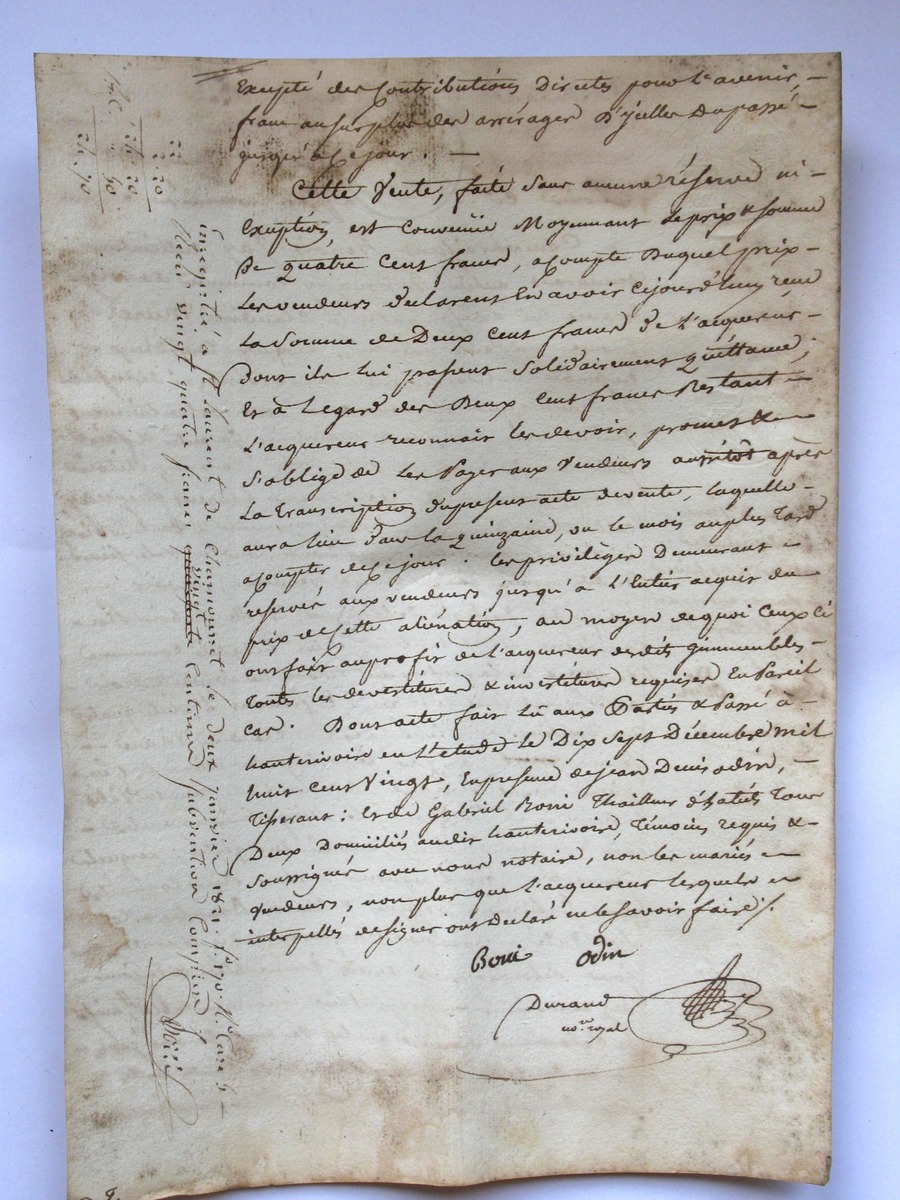 Excepté des Contributions Directes pour l'avenir, –
franc au surplus des arrérages d'ycelles du passé –
jusqu'à Ce jour. —
Cette Vente, faite Sans aucune réserve ni –
Exception, est Convenüe Moyennant Le prix & Somme
De quatre Cent francs, a Compte Duquel prix –
Les vendeurs déclarent En avoir Cejourd'huy reçu
La Somme de Deux Cent francs de L'acquereur –
Dont ils lui passent Solidairement quittance;
Et à Legard des Deux Cent francs Restant –
L'acquereur reconnait les devoir, promet & –
S'oblige de Les Payer aux Vendeurs aussitôt après
La Transcription du présent acte de vente, laquelle –
aura lieu dans la quinzaine, ou le mois au plus Tard
a Compter de Ce jour. Les privilèges Demeurant –
reservés aux vendeurs jusqu'à l'Entier acquis du
prix de Cette aliénation, au moyen de quoi Ceux Ci
ont fait au profit de l'acquereur desdits immeubles –
Toutes les devestitures & investitures requises En Pareil
Cas. Dont acte fait Lû aux Parties & Passé à –
hauterivoire en L'etude le Dix Sept Décembre mil
huit Cent Vingt, En presence de jean Denis odin, –
Tisserant: Et de Gabriel Boni Thailleur d'habits Tous
Deux Domiciliés audit hauterivoire, Témoins requis & –
Soussignés avec nous notaire, non les mariés –
vendeurs, non plus que L'acquereur lesquels –
interpellés de signer ont déclaré ne le Savoir faire /.
Boni odin
Durand
no.re royal
Enregistré à St laurent de Chamousset le deux janvier 1821. f.o 170. R.o Case 5 –
Recu vingt quatre francs quarante vingt Centimes Subvention Comprise
22. 20
2. 20
24. 40